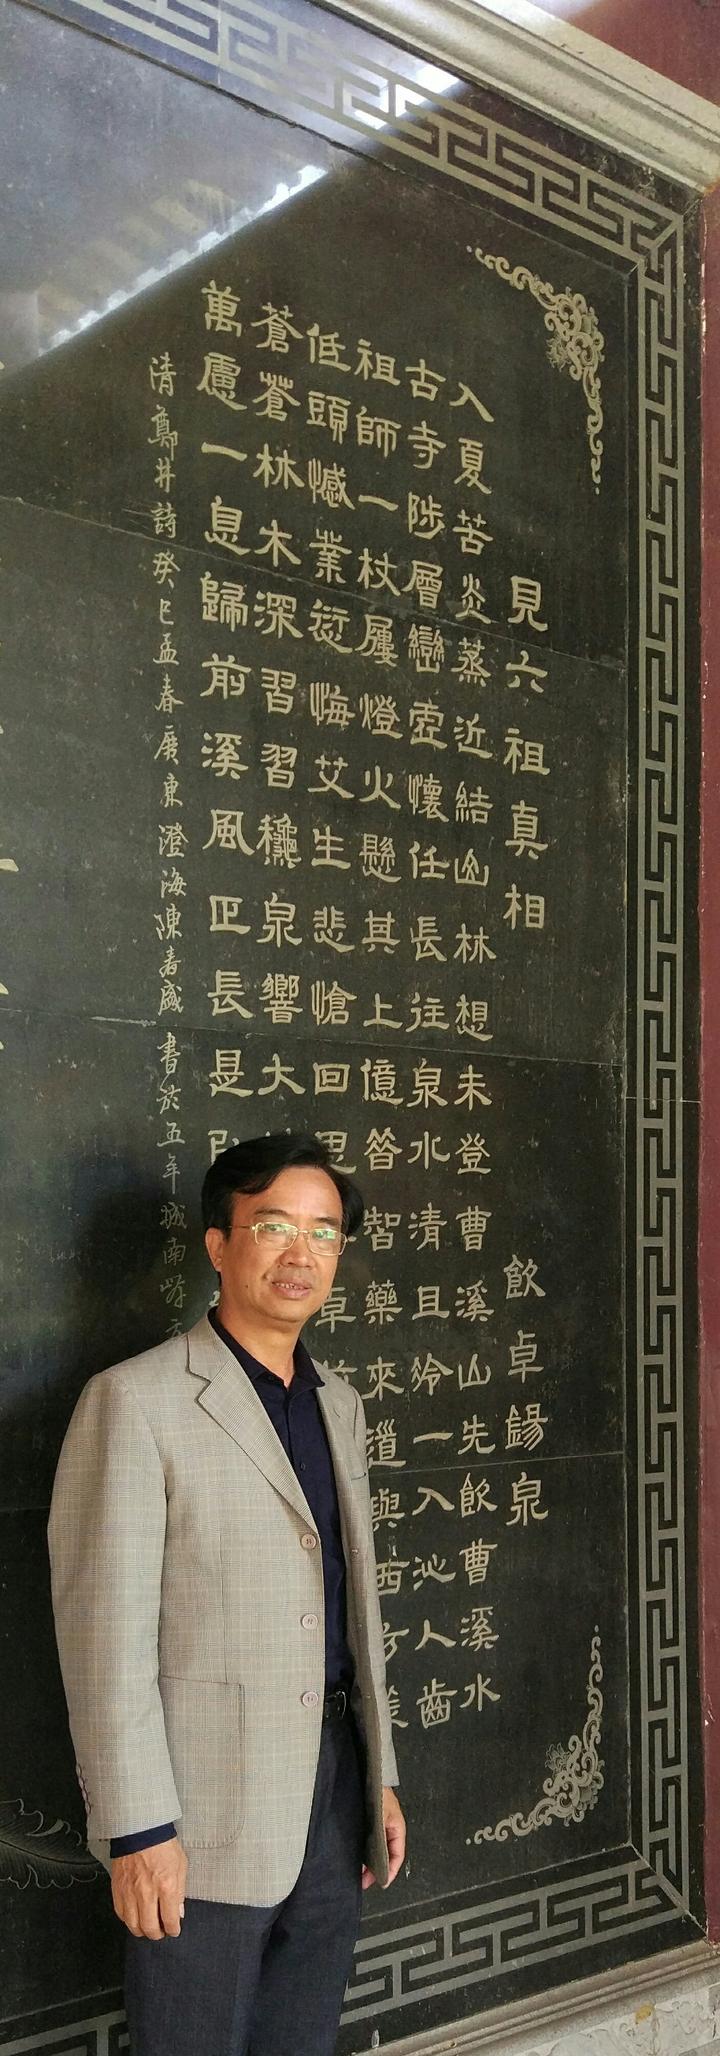 見六祖真相 飲卓錫泉
入夏苦炎蒸近結山林想未登曹溪山先飲曹溪水
古寺陟層巒壺懷任長往泉水清且泠一入沁人齒
祖師一杖屨燈火懸其上億昝智藥來道與西方
低頭憾業愆悔艾生悲愴回思卓
蒼蒼林木深習習龝泉響大
萬慮一息歸前溪風正長是
清鄭井詩癸巳孟春廣東澄海陳春盛書於五年城南